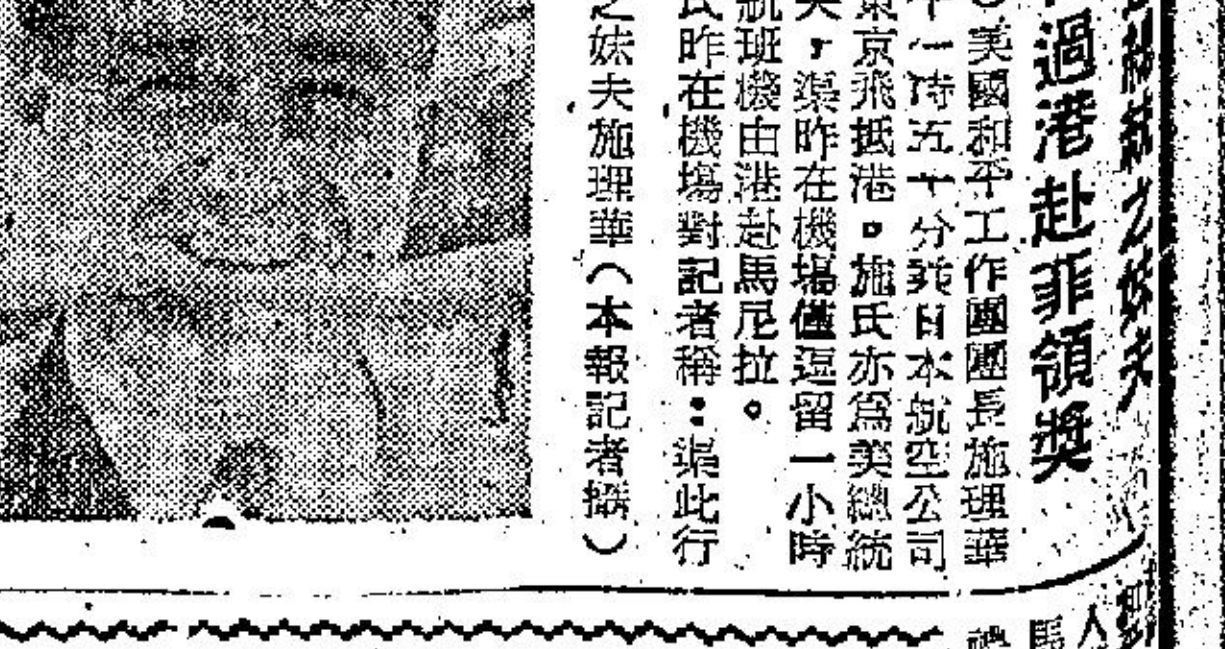 總統之妹夫
過港赴菲領獎
）美國和平工作團團長施理華
一時五十分乘日本航空公司
東京飛抵港。施氏亦為美總統
夫，渠昨在機場僅逗留一小時
航班機由港赴馬尼拉。
氏昨在機場對記者稱：渠此行
之妹夫施理華（本報記者攝）